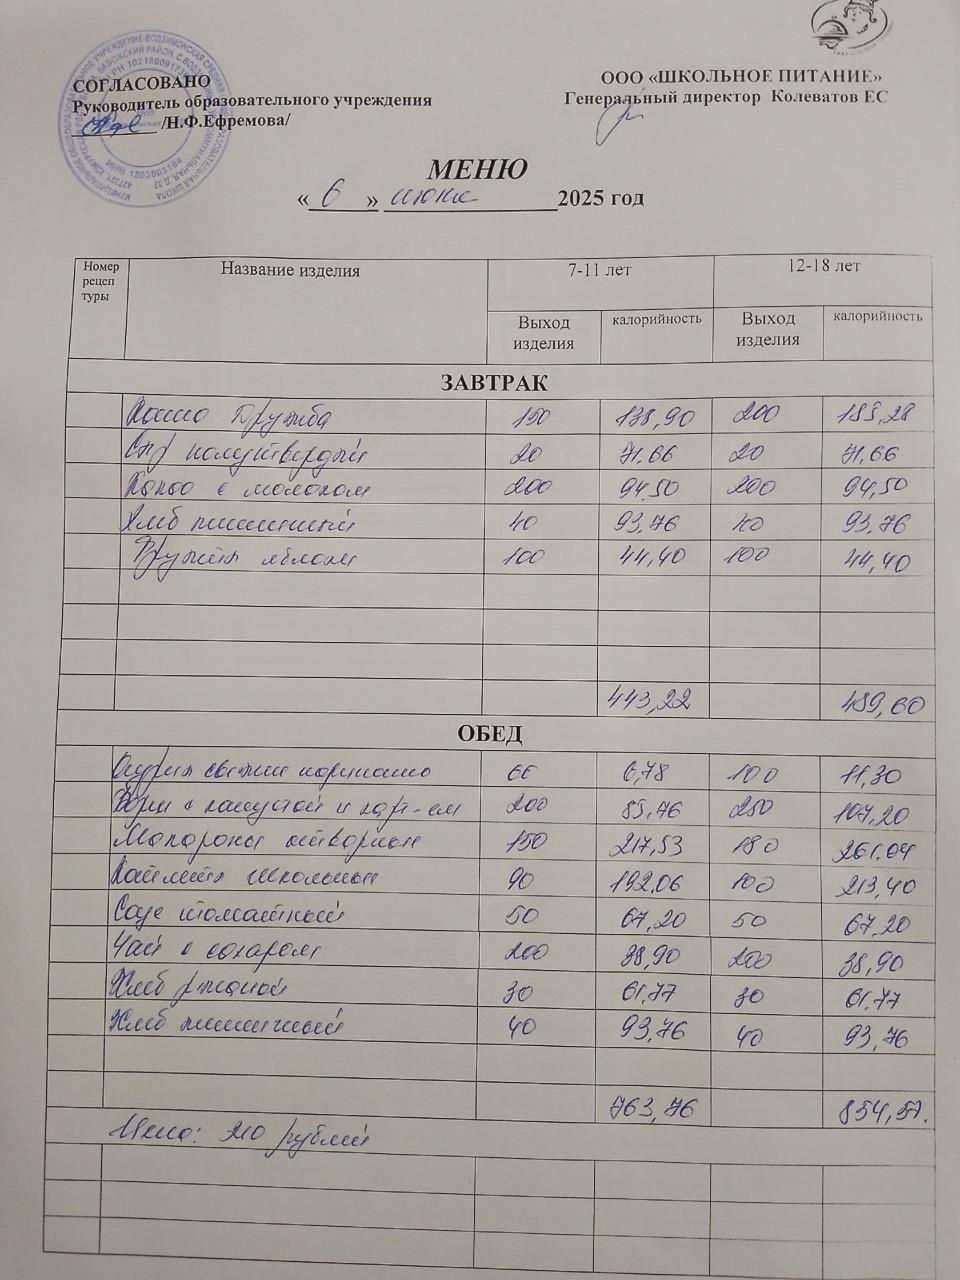 СОГЛАСОВАНО
Руководитель образовательного учреждения
/Н.Ф.Ефремова/
ООО «ШКОЛЬНОЕ ПИТАНИЕ»
Генеральный директор Колеватов ЕС
МЕНЮ
« 6 » июня 2025 год
Номер рецеп туры Название изделия 7-11 лет 12-18 лет
Выход изделия калорийность Выход изделия калорийность
ЗАВТРАК
Каша Дружба 150 138,90 200 185,28
Сыр полутвердый 20 71.66 20 71.66
Какао с молоком 200 94,50 200 94,50
Хлеб пшеничный 40 93,76 40 93,76
Фрукты яблоки 100 44,40 100 44,40
443,22 489,60
ОБЕД
Огурцы свежие порционно 66 6,78 100 11,30
Борщ с капустой и карт-ем 200 85,76 250 107,20
Макароны отварные 150 217,53 180 261.04
Котлета школьная 90 192,06 100 213,40
Соус томатный 50 67,20 50 67,20
Чай с сахаром 200 38,90 200 38,90
Хлеб ржаной 30 61,77 30 61.77
Хлеб пшеничный 40 93,76 40 93,76
763,76 854,57.
Цена: 210 рублей